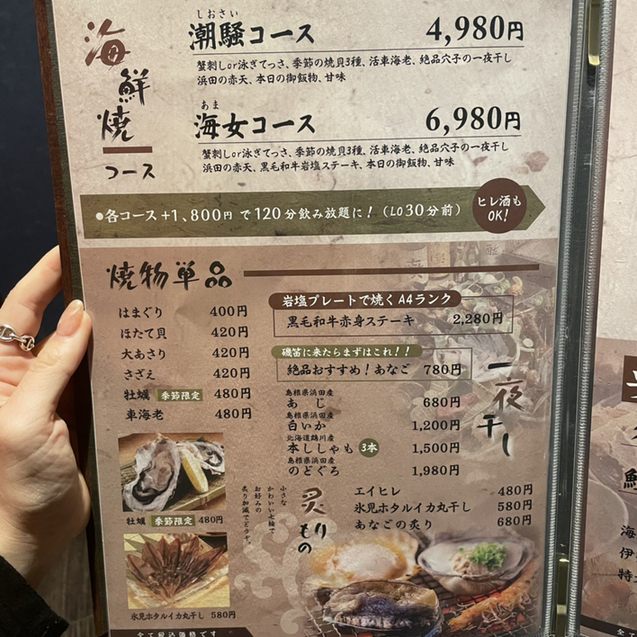 海鮮焼コース
しおさい
潮騒コース 4,980円
蟹刺しor泳ぎてっさ、季節の焼貝3種、活車海老、絶品穴子の一夜干し
浜田の赤天、本日の御飯物、甘味
あま
海女コース 6,980円
蟹刺しor泳ぎてっさ、季節の焼貝3種、活車海老、絶品穴子の一夜干し
浜田の赤天、黒毛和牛岩塩ステーキ、本日の御飯物、甘味
●各コース+1、800円で120分飲み放題に！（LO30分前）
ヒレ酒も
OK!
焼物単品
はまぐり 400円
ほたて貝 420円
大あさり 420円
さざえ 420円
牡蠣 季節限定 480円
車海老 480円
牡蠣 季節限定 480円
氷見ホタルイカ丸干し 580円
岩塩プレートで焼くA4ランク
黒毛和牛赤身ステーキ 2,280円
磯笛に来たらまずはこれ！！
絶品おすすめ！あなご 780円
一夜干し
島根県浜田産
あじ 680円
島根県浜田産
白いか 1,200円
北海道鵡川産
本ししゃも 3本 1,500円
島根県浜田産
のどぐろ 1,980円
炙りもの
小さな
かわいい七輪で
お好みの
炙り加減でどうぞ。
エイヒレ 480円
氷見ホタルイカ丸干し 580円
あなごの炙り 680円
全て税込価格です